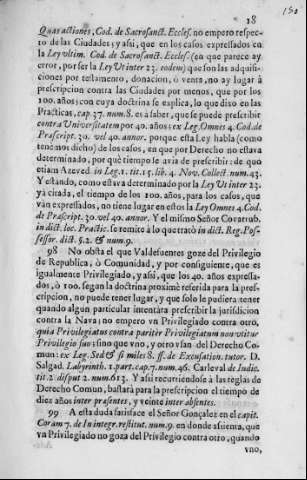 18
Quas actiones, Cod. de Sacrosanct. Eccles. no empero respec-
to de las Ciudades; y assi, que en los casos expressados en
la Ley vltim. Cod. de Sacrosanct. Eccles. (en que parece ay
error, por ser la Ley Vt inter 23. eodem) que son las adquisi-
ciones por testamento, donacion, ò venta, no ay lugar à
prescripcion contra las Ciudades por menos, que por los
100. años; con cuya doctrina se explica, lo que dixo en las
Practicas, cap. 37. num. 8. es à saber, que se puede prescribir
contra Vniversitatem por 40. años; ex Leg. Omnes 4. Cod. de
Præscript. 30. vel 40. annor. porque esta Ley habla (como
tenemos dicho) de los casos, en que por Derecho no estava
determinado, por què tiempo se avia de prescribir: de quo
etiam Azeved. in Leg. 1. tit. 15. lib. 4. Nov. Collect. num. 43.
Y estando, como estava determinado por la Ley Vt inter 23.
yà citada, el tiempo de los 100. años, para los casos, que
vàn expressados, no tiene lugar en estos la Ley Omnes 4. Cod.
de Præscript. 30. vel 40. annor. Y el mismo Señor Covarrub.
in dict. loc. Practic. se remite à lo que tratò in dict. Reg. Pos-
sessor. dict. §. 2. & num. 9.
98 No obsta el que Valdefuentes goze del Privilegio
de Republica, ò Comunidad, y por consiguiente, que es
igualmente Privilegiado, y assi, que los 40. años expressa-
dos, ò 100. segun la doctrina proximè referida para la pres-
cripcion, no puede tener lugar, y que solo le pudiera tener
quando algun particular intentàra prescribir la jurisdicion
contra la Nava; no empero vn Privilegiado contra otro,
quia Privilegiatus contra pariter Privilegiatum non vtitur
Privilegio suo; sino que vno, y otro vsan del Derecho Co-
mun: ex Leg. Sed & si miles 8. ff. de Excusation. tutor. D.
Salgad. Labyrinth. 1. part. cap. 7. num. 46. Carleval de Indic.
tit. 2. disput 2. num. 613. Y assi recurriendose à las reglas de
Derecho Comun, bastarà para la prescripcion el tiempo de
diez años inter præsentes, y veinte inter absentes.
99 A esta duda satisface el Señor Gonçalez en el capit.
Coram 7. de In integr. restitut. num. 9. en donde assienta, que
vn Privilegiado no goza del Privilegio contra otro, quando
vno,